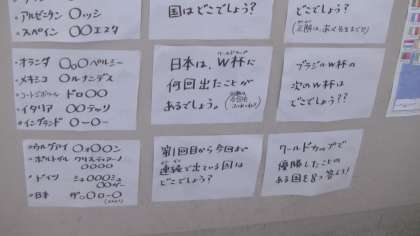 ・アルゼンチン 〇ッシ
・スペイン 〇〇エスタ
国はどこでしょう?
どこでしょう?
・オランダ 〇ん〇ペルシー
・メキシコ 〇ルナンデス
・コートジボワール ドロ〇〇
・イタリア 〇〇テッリ
・イングランド 〇ー〇ー
日本は、W杯に
ワールドカップ
何回出たことが
あるでしょう。
ブラジルW杯の
次のW杯は
どこでしょう??
・ウルグアイ 〇ォ〇〇ン
・ポルトガル クリスティアーノ
〇〇〇〇
・ドイツ シュ〇〇〇シュ
〇〇ガー
・日本
第1回目から今回まで
連続で出ている国は
どこでしょう?
ワールドカップで
優勝したことの
ある国を8つ答えよう!